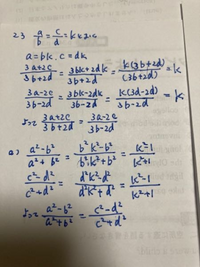 23 a/b = c/d = k とおく
a = bk . c = dk
3a+2c/3b+2d = 3bk+2dk/3b+2d = k(3b+2d)/(3b+2d) = k
3a-2c/3b-2d = 3bk-2dk/3b-2d = k(3d-2d)/3b-2d = k
よって 3a+2c/3b+2d = 3a-2c/3b-2d
a²-b²/a²+b² = b²k²-b²/b²k²+b² = k²-1/k²+1
c²-d²/c²+d² = d²k²-d²/d²k²+d² = k²-1/k²+1
よって a²-b²/a²+b² = c²-d²/c²+d²